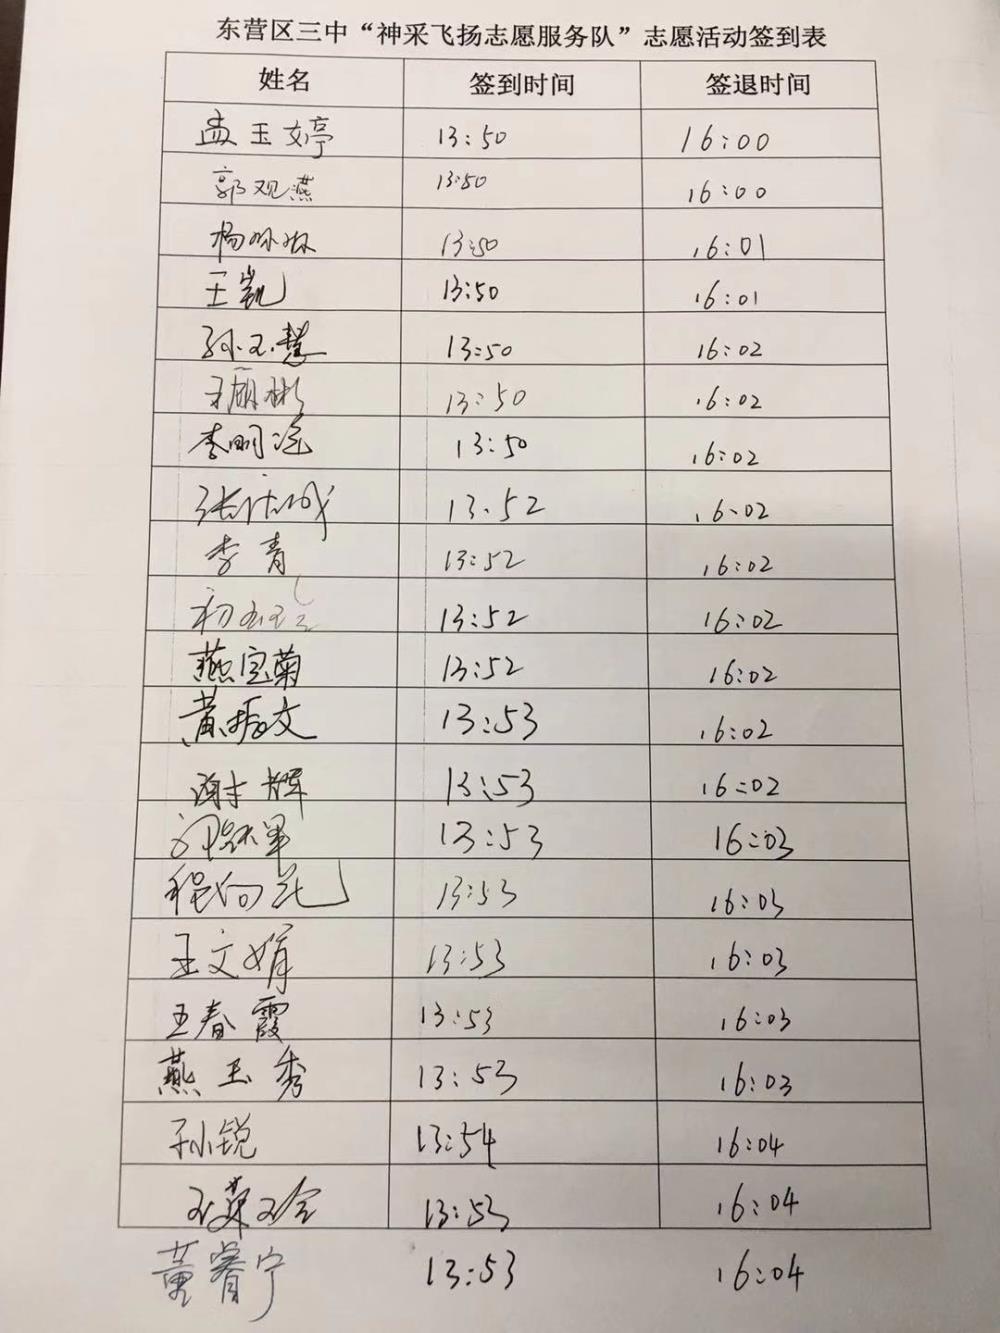 东营区三中“神采飞扬志愿服务队”志愿活动签到表
姓名 签到时间 签退时间
孟玉婷 13:50 16:00
郭观燕 13:50 16:00
杨 13:50 16:01
王凯 13:50 16:01
孙玉慧 13:50 16:02
王丽彬 13:50 16:02
李明 13:50 16:02
张 13.52 16.02
李青 13:52 16:02
初 13:52 16:02
燕宝菊 13:52 16:02
黄振文 13:53 16:02
谢辉 13:53 16:02
13:53 16:03
程向花 13:53 16:03
王文娟 13:53 16:03
王春霞 13:53 16:03
燕玉秀 13:53 16:03
孙锐 13:54 16:04
王英玲 13:53 16:04
董睿宁 13:53 16:04